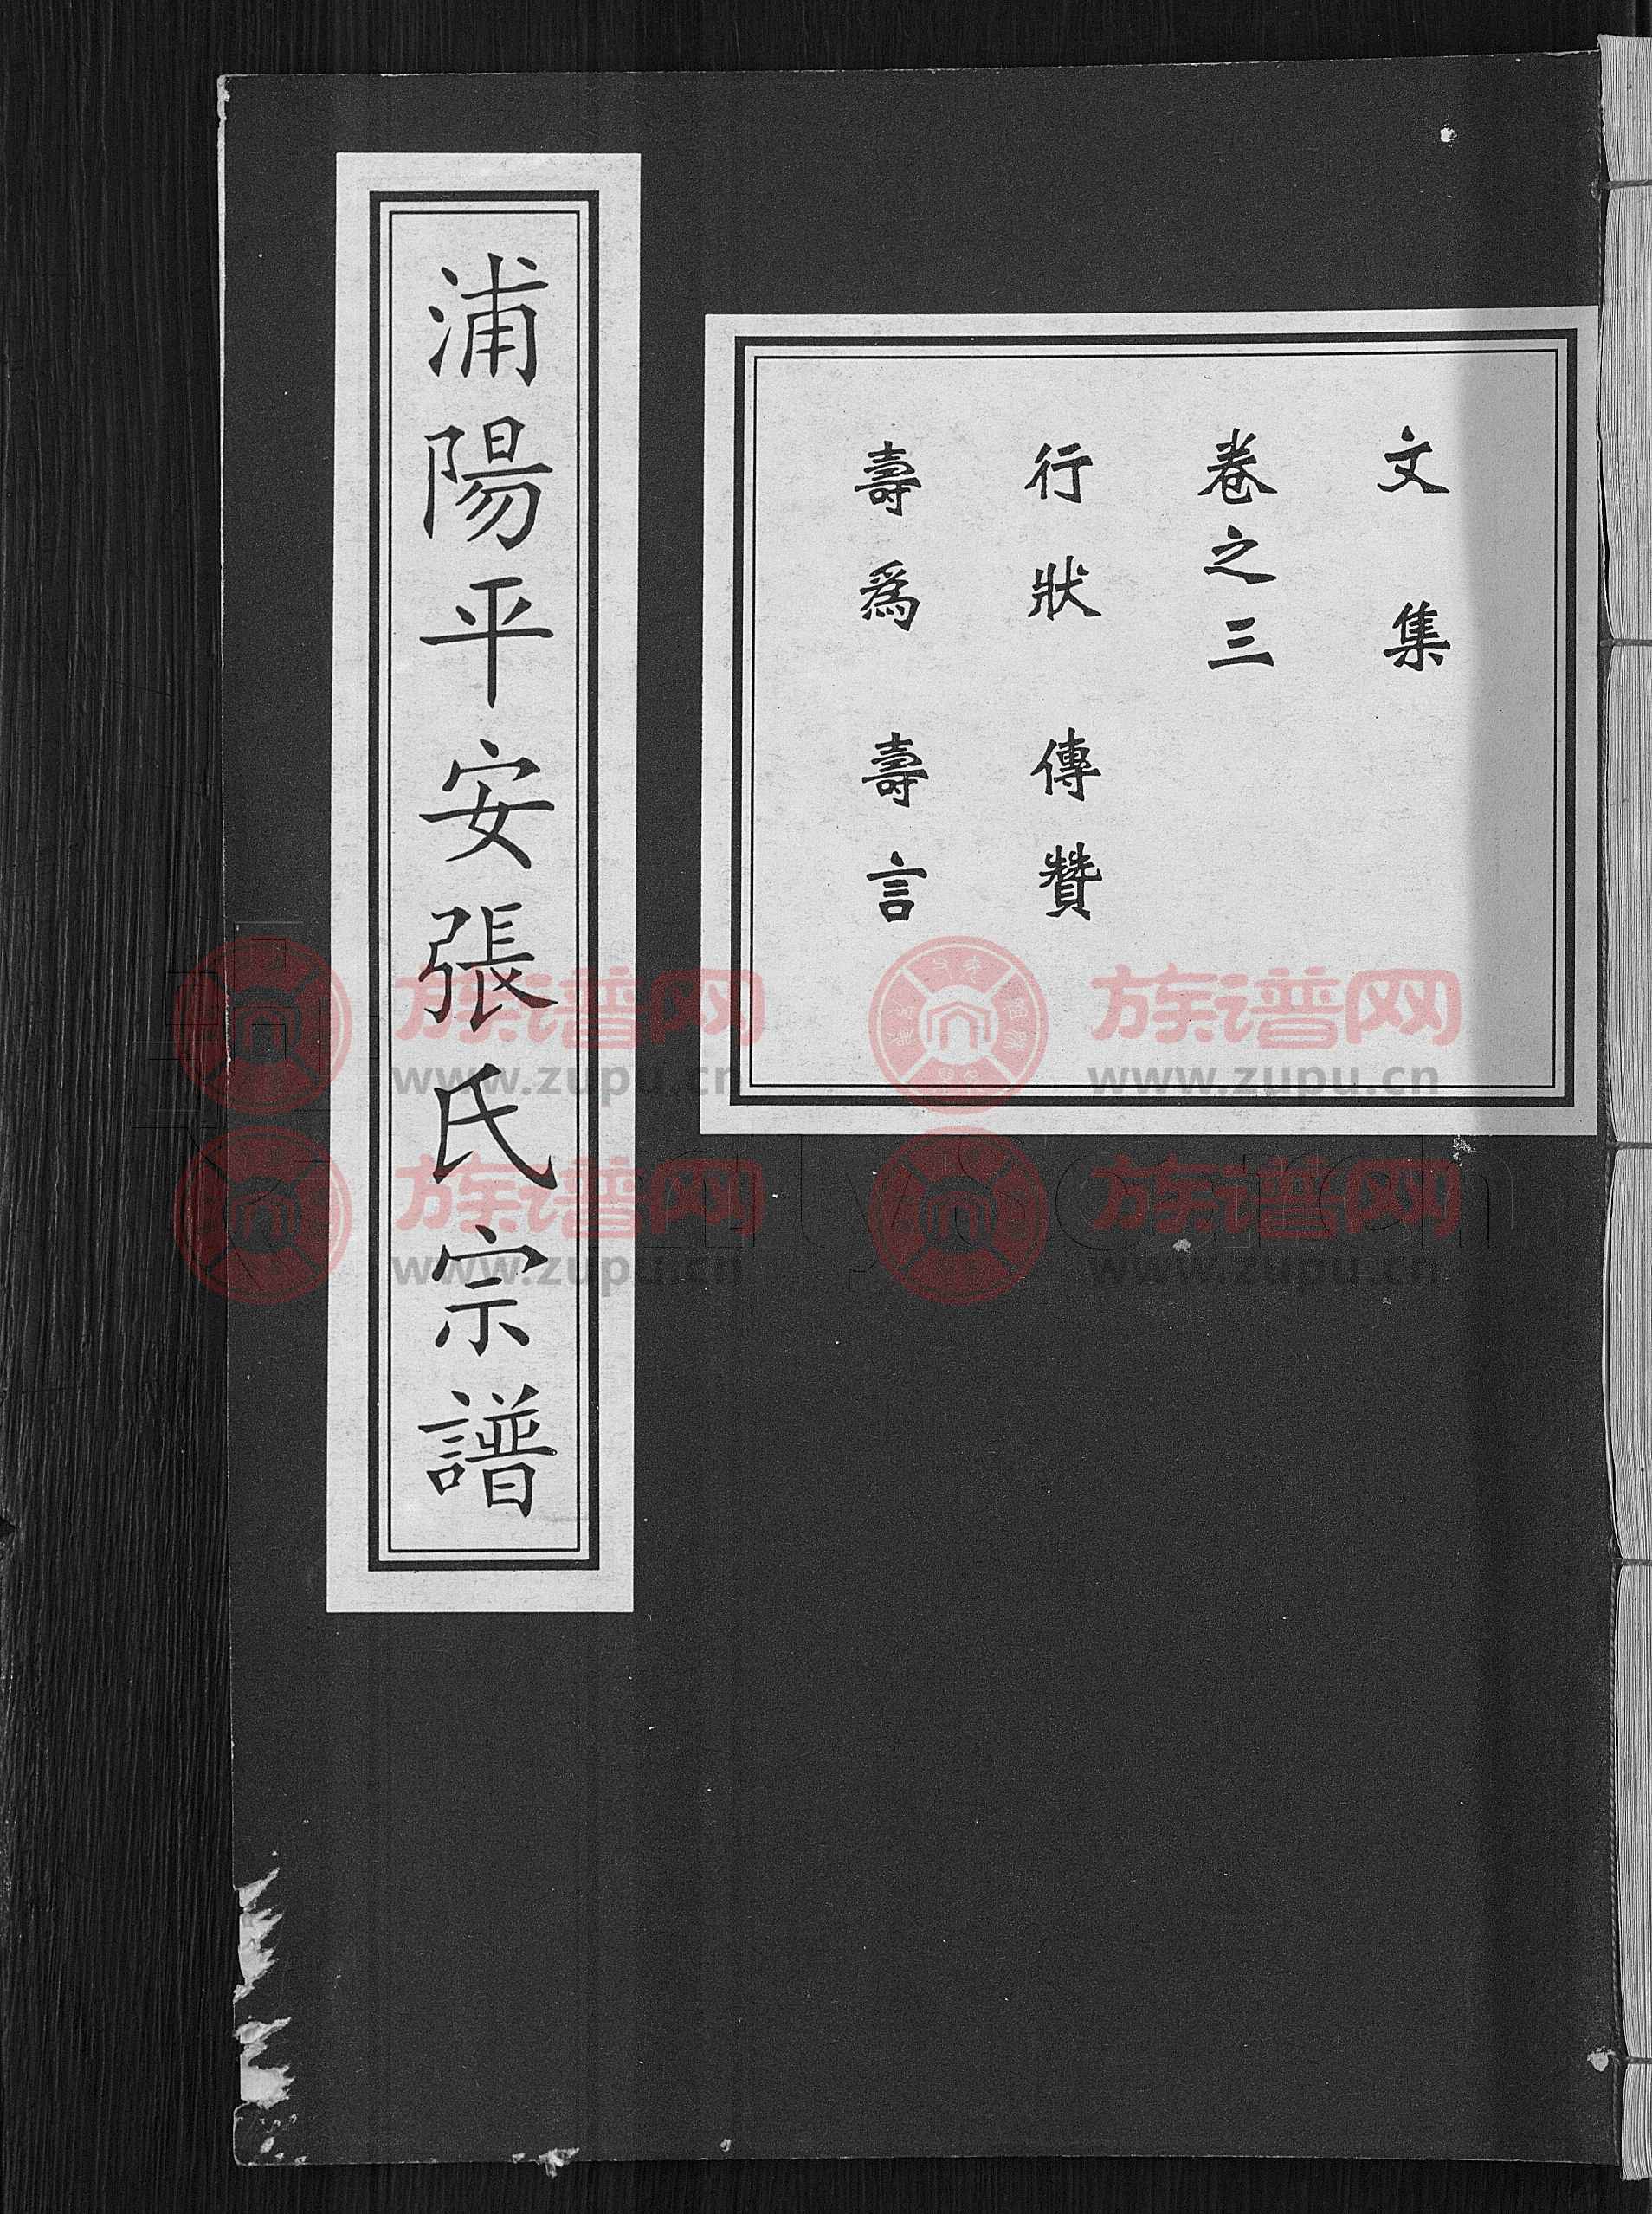 文集
卷之三
行狀 傳贊
壽爲 壽言
浦陽平安張氏宗譜
族谱网
www.zupu.cn
族谱网
www.zupu.cn
族谱网
www.zupu.cn
族谱网
www.zupu.cn